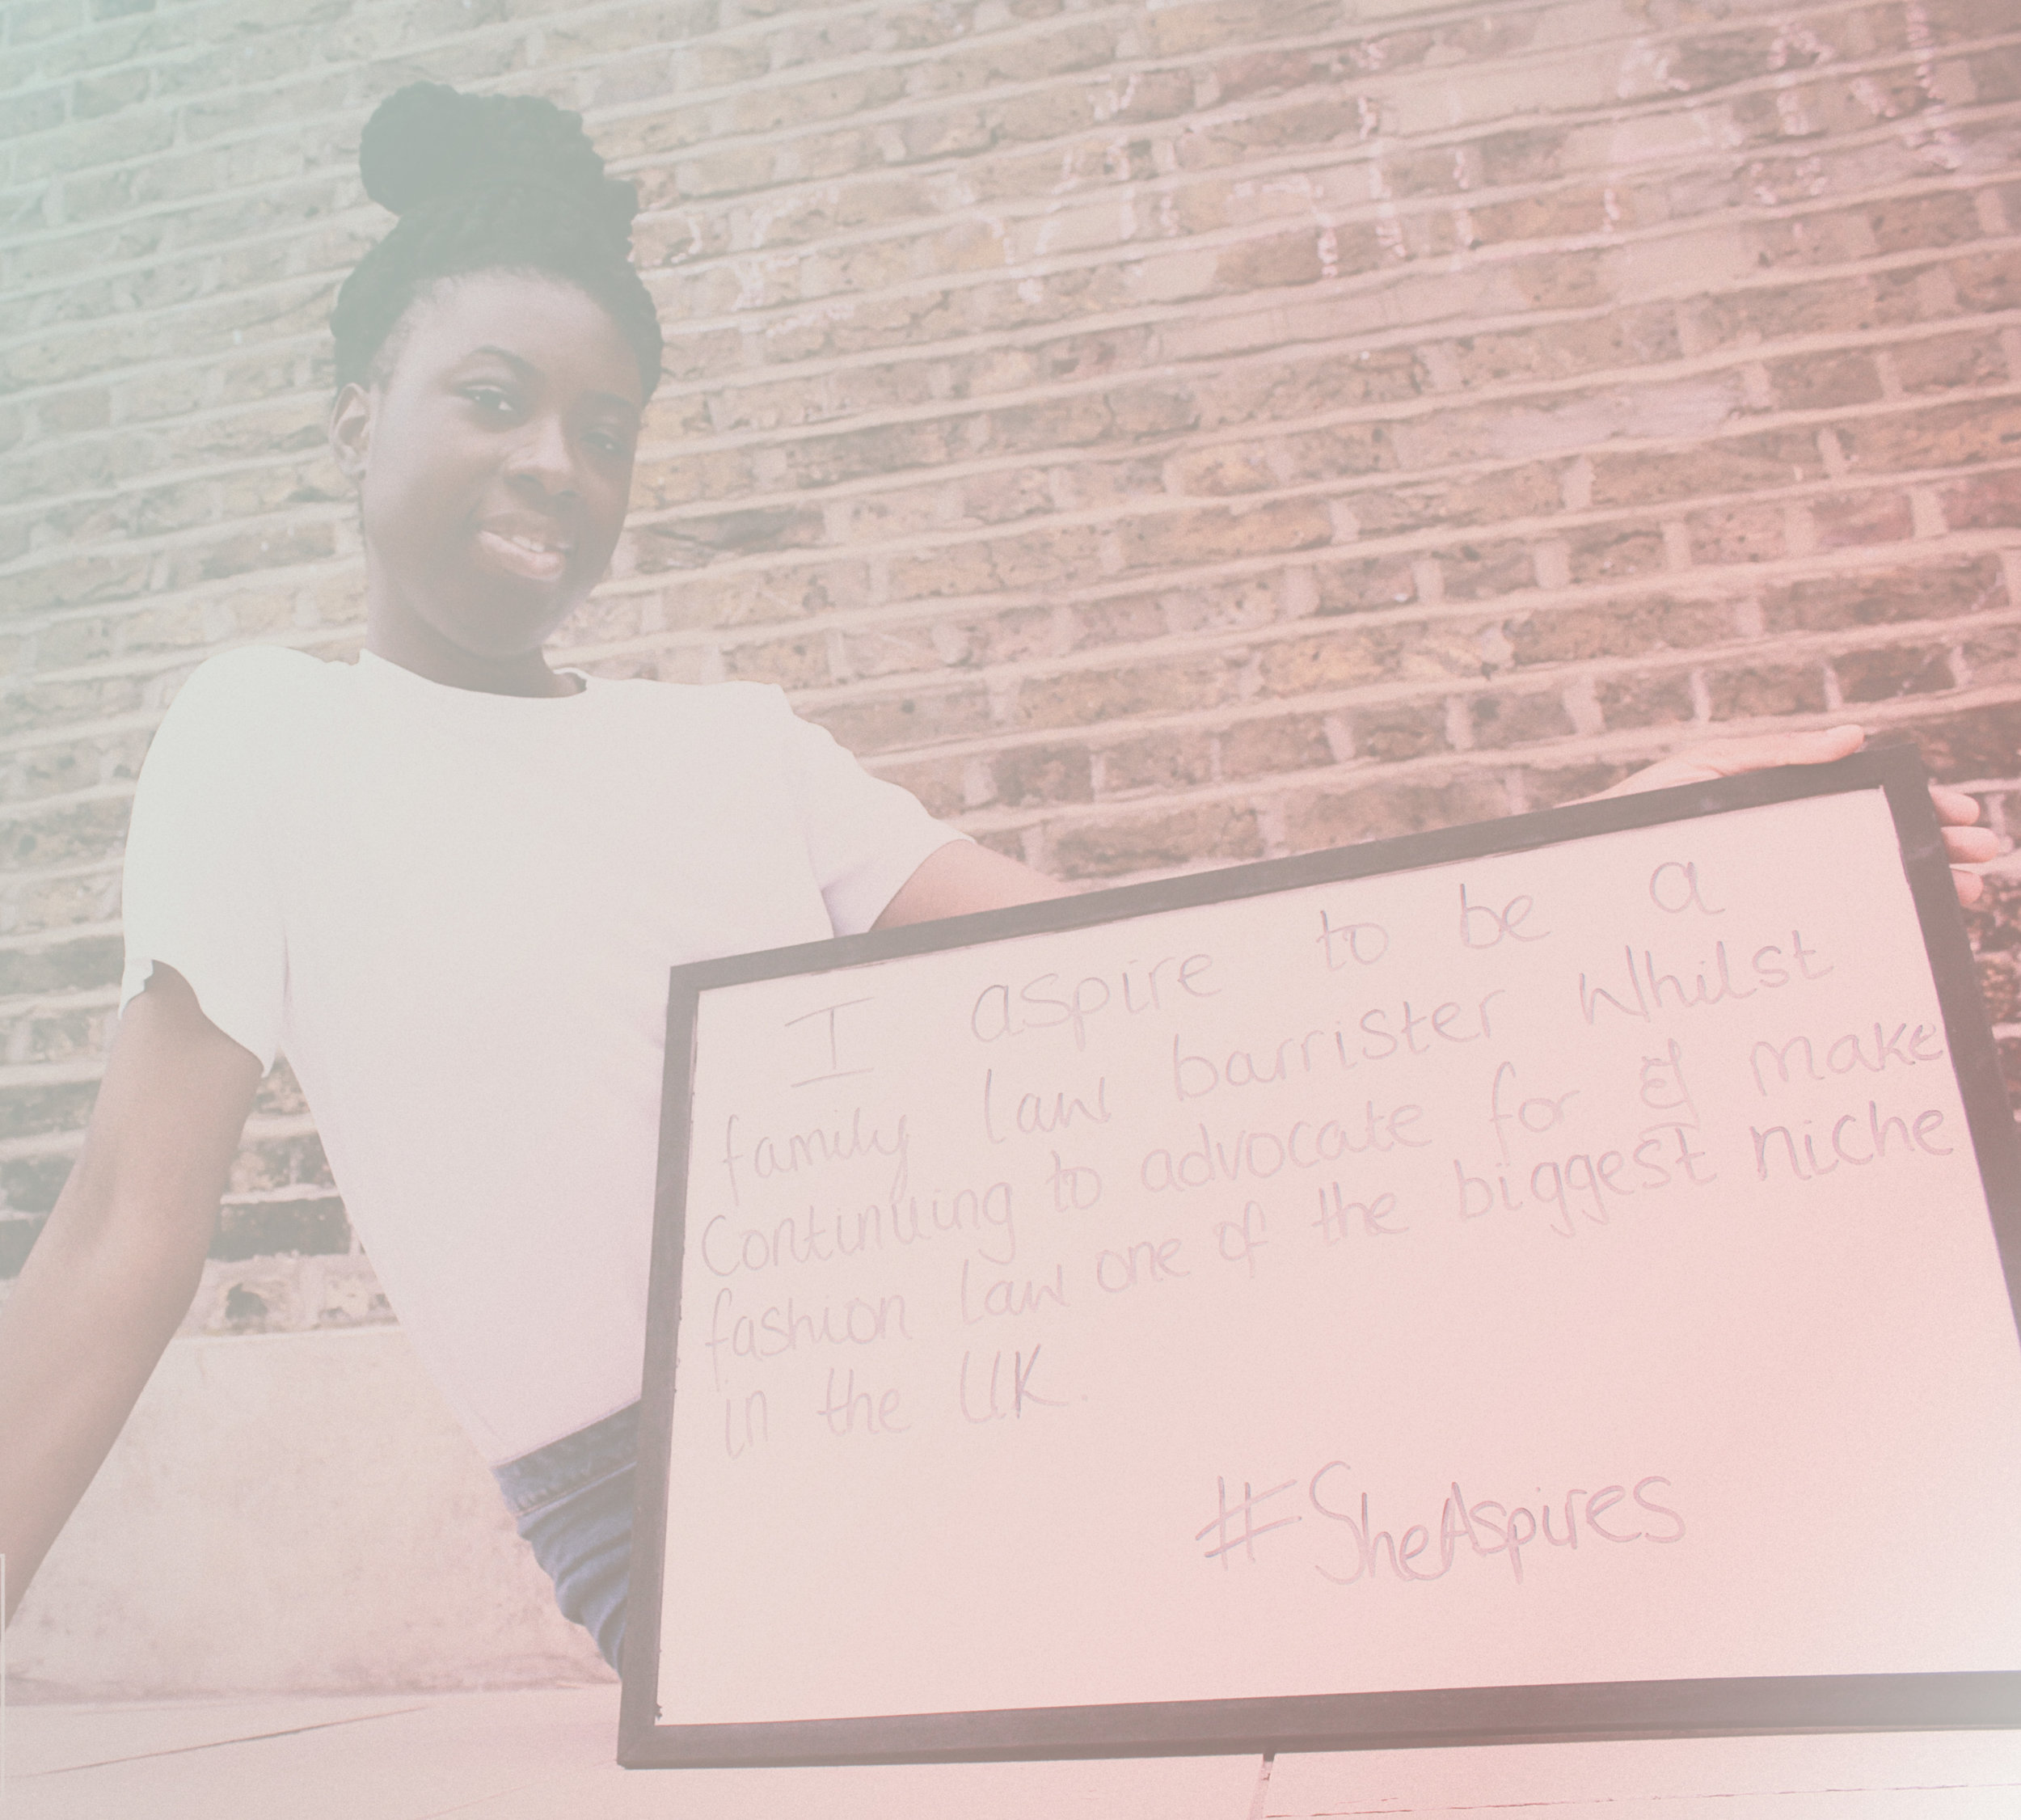 I aspire to be a
family law barrister whilst
Continuing to advocate for & make
fashion law one of the biggest niche
in the UK.
#SheAspires